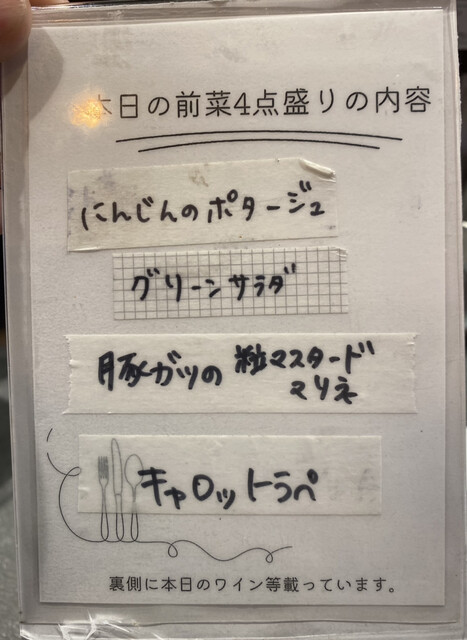 本日の前菜4点盛りの内容
にんじんのポタージュ
グリーンサラダ
豚ガツの 粒マスタード
マリネ
キャロットラペ
裏側に本日のワイン等載っています。